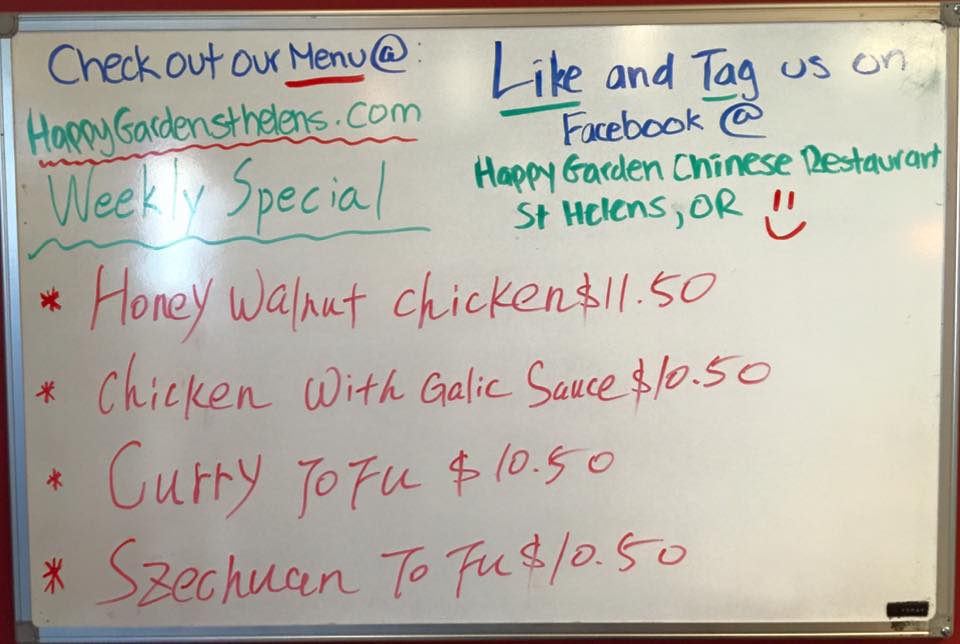 Check out our Menu @:
HappyGardensthelens.com
Like and Tag us on
Facebook @
Happy Garden Chinese Restaurant
St Helens, OR
Weekly Special
* Honey Walnut chicken $11.50
* Chicken With Galic Sauce $10.50
* Curry ToFu $10.50
* Szechuan To Fu $10.50